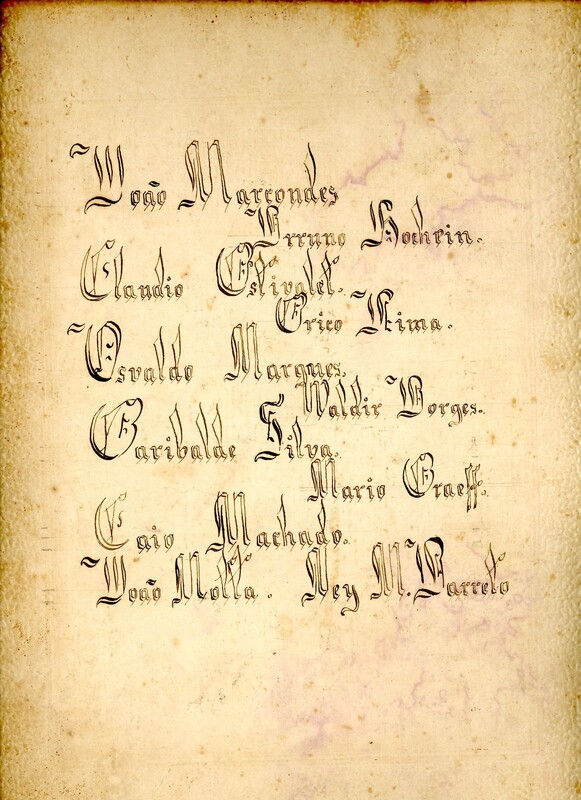 João Marcondes
Brruno Hochein.
Claudio Estivalet.
Erico Lima.
Osvaldo Marques.
Waldir Borges.
Garibalde Silva.
Mario Graeff.
Caio Machado.
João Motta. Ney M. Barreto